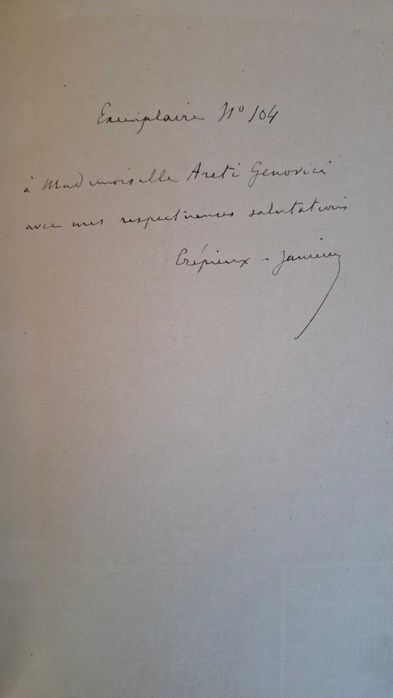 Exemplaire No 104
à Mademoiselle Areti Genovici
avec mes respectueuses salutations
Crépieux-Jamin